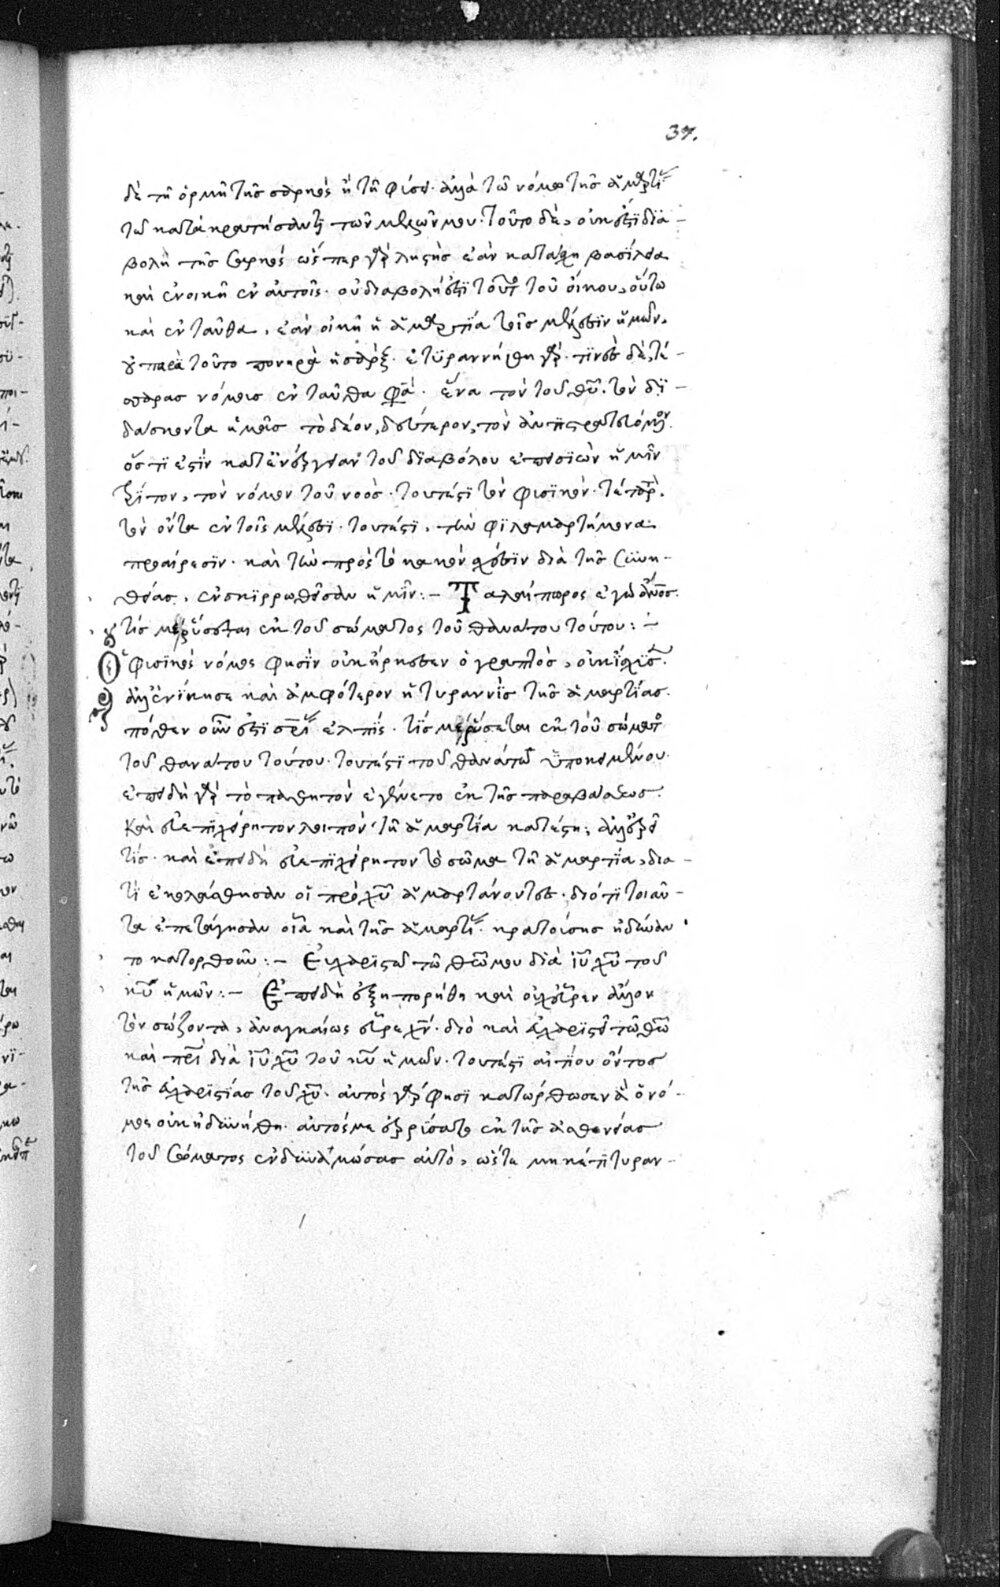 37.
δὲ τῆ ὁρμῆ τῆς σαρκὸς ἢ τῆ φύσει. ἀλλὰ τῶ νόμω τῆς ἁμαρτί
τῶ κατακρατήσαντι τῶν μελῶν μου. τοῦτο δὲ, οὐκ ἔστι δια-
βολὴ τῆς σαρκὸς ὥσπερ γὰρ ληστὴς ἐὰν κατάσχη βασίλεια
καὶ ἐνοικῆ ἐν αὐτοῖς. οὐ διαβολή ἐστι τοῦτο τοῦ οἴκου, οὕτω
καὶ ἐνταῦθα, ἐὰν οἰκῆ ἡ ἁμαρτία τοῖς μέλεσιν ἡμῶν,
οὐ παρὰ τοῦτο πονηρὰ ἡ σάρξ. ἐτυραννήθη γάρ. τινὲς δὲ, τέ-
σσαρας νόμους ἐνταῦθα φασί. ἕνα τὸν τοῦ θεοῦ. τὸν δι-
δάσκοντα ἡμᾶς τὸ δέον, δεύτερον, τὸν ἀντιστρατευόμενον.
ὅστις ἐστὶν κατ' ἐνέργειαν τοῦ διαβόλου ἐπεισιὼν ἡμῖν
τρίτον, τὸν νόμον τοῦ νοός. τουτέστι τὸν φυσικόν. τέταρτον,
τὸν ὄντα ἐν τοῖς μέλεσι. τουτέστι, τὴν φιλαμαρτήμονα
προαίρεσιν. καὶ τὴν πρὸς τὸ κακὸν σχέσιν διὰ τῆς συνη-
θείας, ἐνσκιρρωθεῖσαν ἡμῖν:- Ταλαίπωρος ἐγὼ ἄνθρωπος.
τίς με ῥύσεται ἐκ τοῦ σώματος τοῦ θανάτου τούτου:-
Ὁ φυσικὸς νόμος φησὶν οὐκ ἤρκεσεν ὁ γραπτὸς, οὐκ ἴσχυσεν.
ἀλλ' ἐνίκησε καὶ ἀμφότερον ἡ τυραννὶς τῆς ἁμαρτίας.
πόθεν οὖν ἐστι σωτηρίας ἐλπίς. τίς με ῥύσεται ἐκ τοῦ σώματος
τοῦ θανάτου τούτου. τουτέστι τοῦ θανάτω ὑποκειμένου.
ἐπειδὴ γὰρ τὸ παθητὸν ἐγένετο ἐκ τῆς παραβάσεως.
καὶ εὐεπιχείρητον λοιπὸν τῆ ἁμαρτία κατέστη: ἀλλ' ἐρεῖ
τίς. καὶ ἐπειδὴ εὐεπιχείρητον τὸ σῶμα τῆ ἁμαρτία, δια-
τί ἐκολάσθησαν οἱ πρὸ χυ ἁμαρτάνοντες. διότι τοιαῦ-
τα ἐπετάγησαν οἷα καὶ τῆς ἁμαρτίας κρατούσης ἠδύναν
το κατορθοῦν:- Εὐχαριστῶ τῶ θεῶ μου διὰ ιυ χυ τοῦ
κυ ἡμῶν:- Ἐπειδὴ ἐξηπορήθη καὶ οὐχ εὗρεν ἄλλον
τὸν σώζοντα, ἀναγκαίως εὗρε χν. διὸ καὶ εὐχαριστεῖ τῶ θεῶ
καὶ πρι διὰ ιυ χυ τοῦ κυ ἡμῶν. τουτέστι αἰτίου ὄντος
τῆς εὐχαριστίας τοῦ χυ. αὐτὸς γάρ φησι κατώρθωσεν ἃ ὁ νό-
μος οὐκ ἠδυνήθη. αὐτός με ἐξείλετο ἐκ τῆς ἀσθενείας
τοῦ σώματος ἐνδυναμώσας αὐτὸ, ὥστε μηκέτι τυραν-